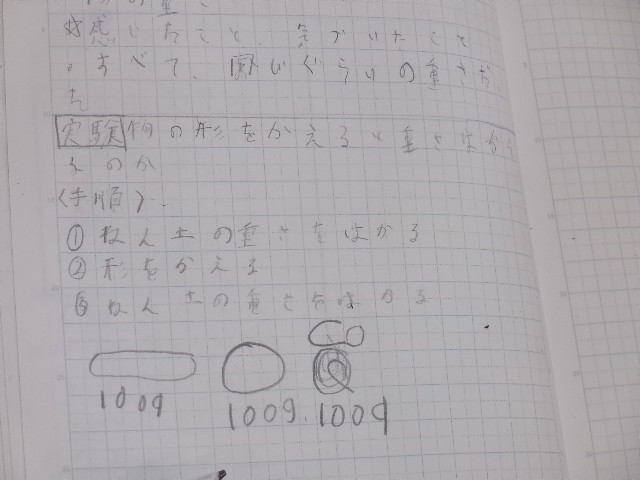 の重さ
感じたこと、気づいたこと
・すべて、同じぐらいの重さだ
た
実験 物の形をかえると重さはかわ
るのか
〈手順〉.
①ねん土の重さをはかる
②形をかえる
③ねん土の重さをはかる
100g 100g. 100g